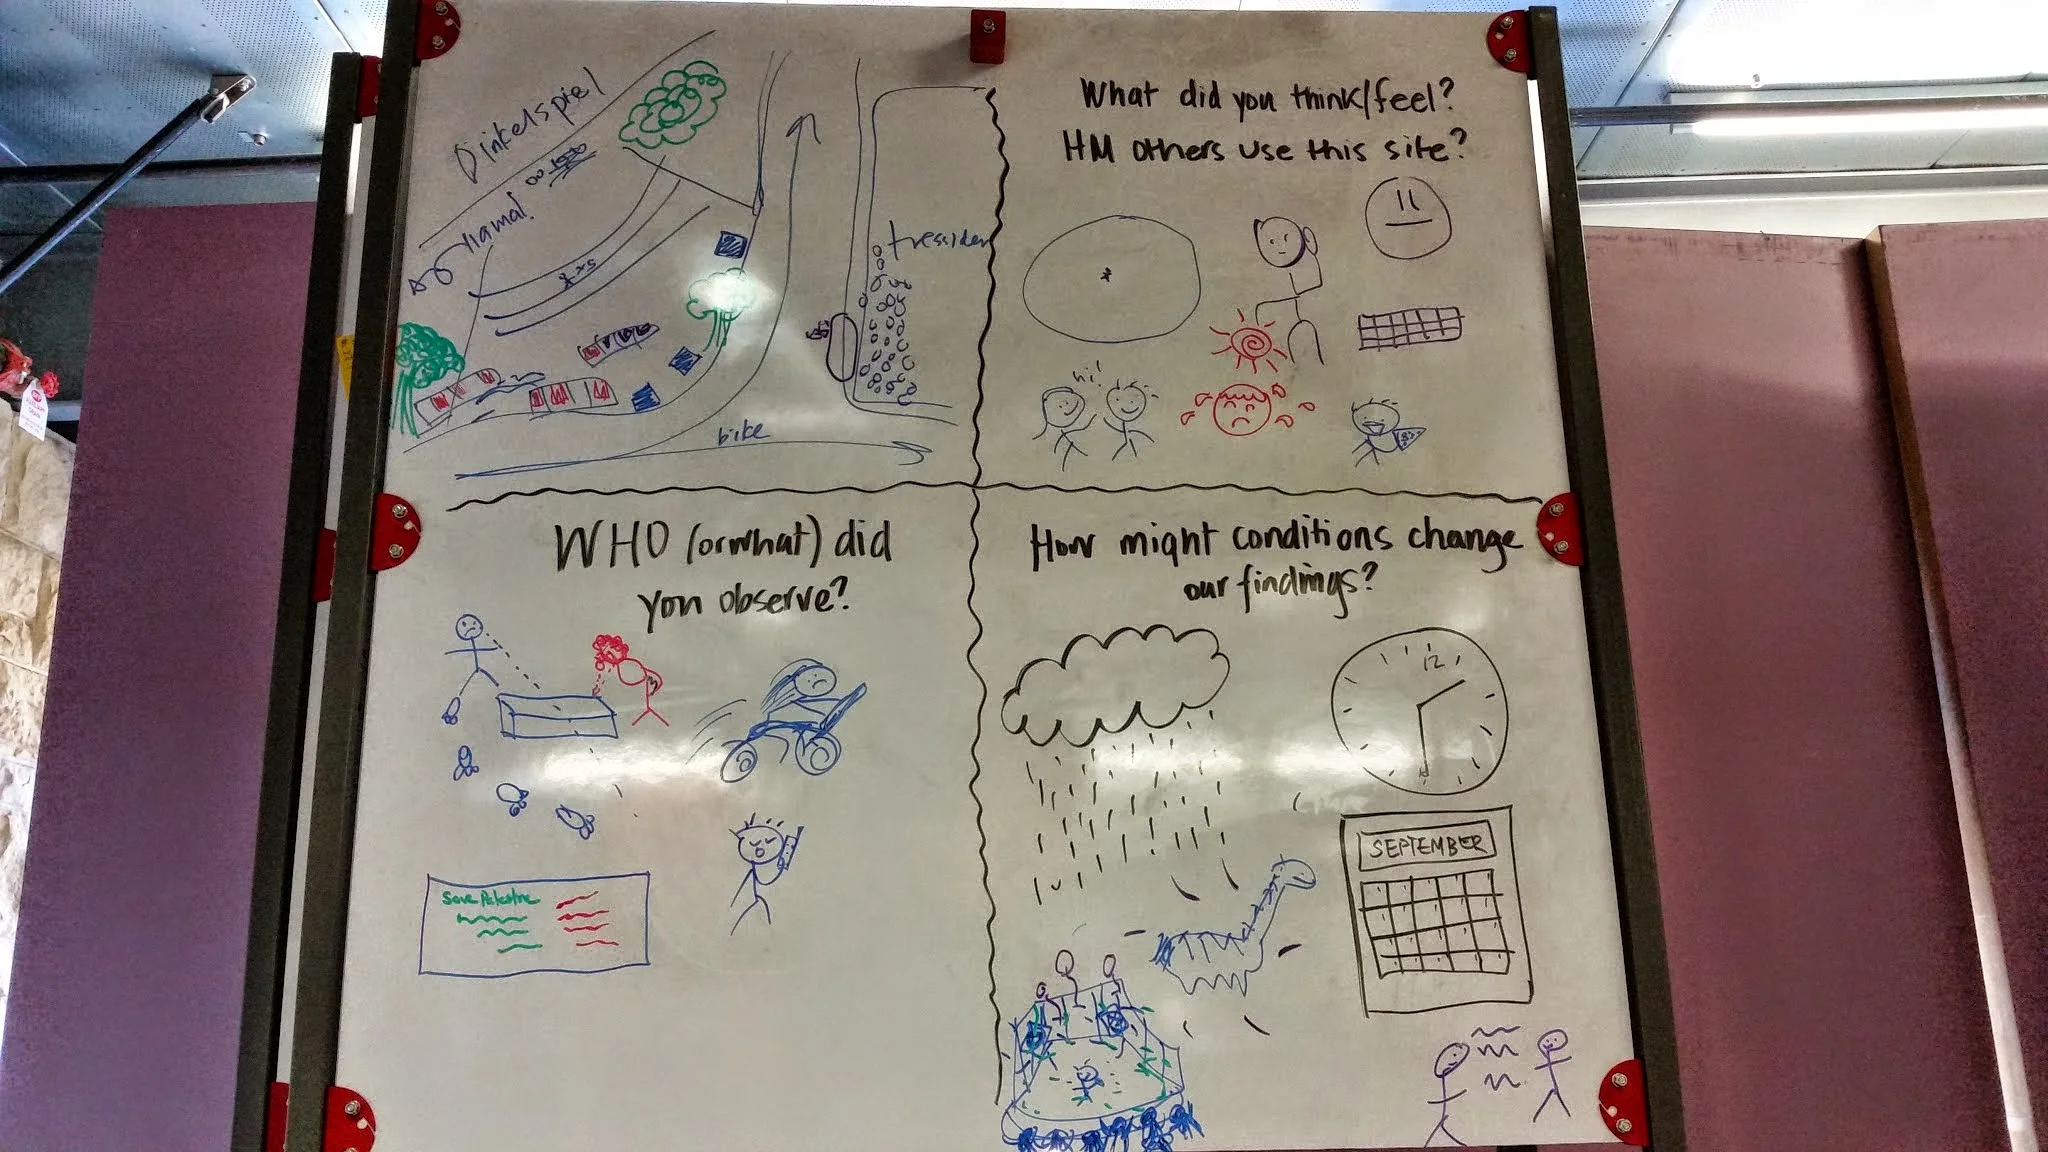 Dinkelspiel
bike
What did you think/feel?
HM others use this site?
hi!
WHO (or what) did
you observe?
Save Palestine
How might conditions change
our findings?
12
SEPTEMBER